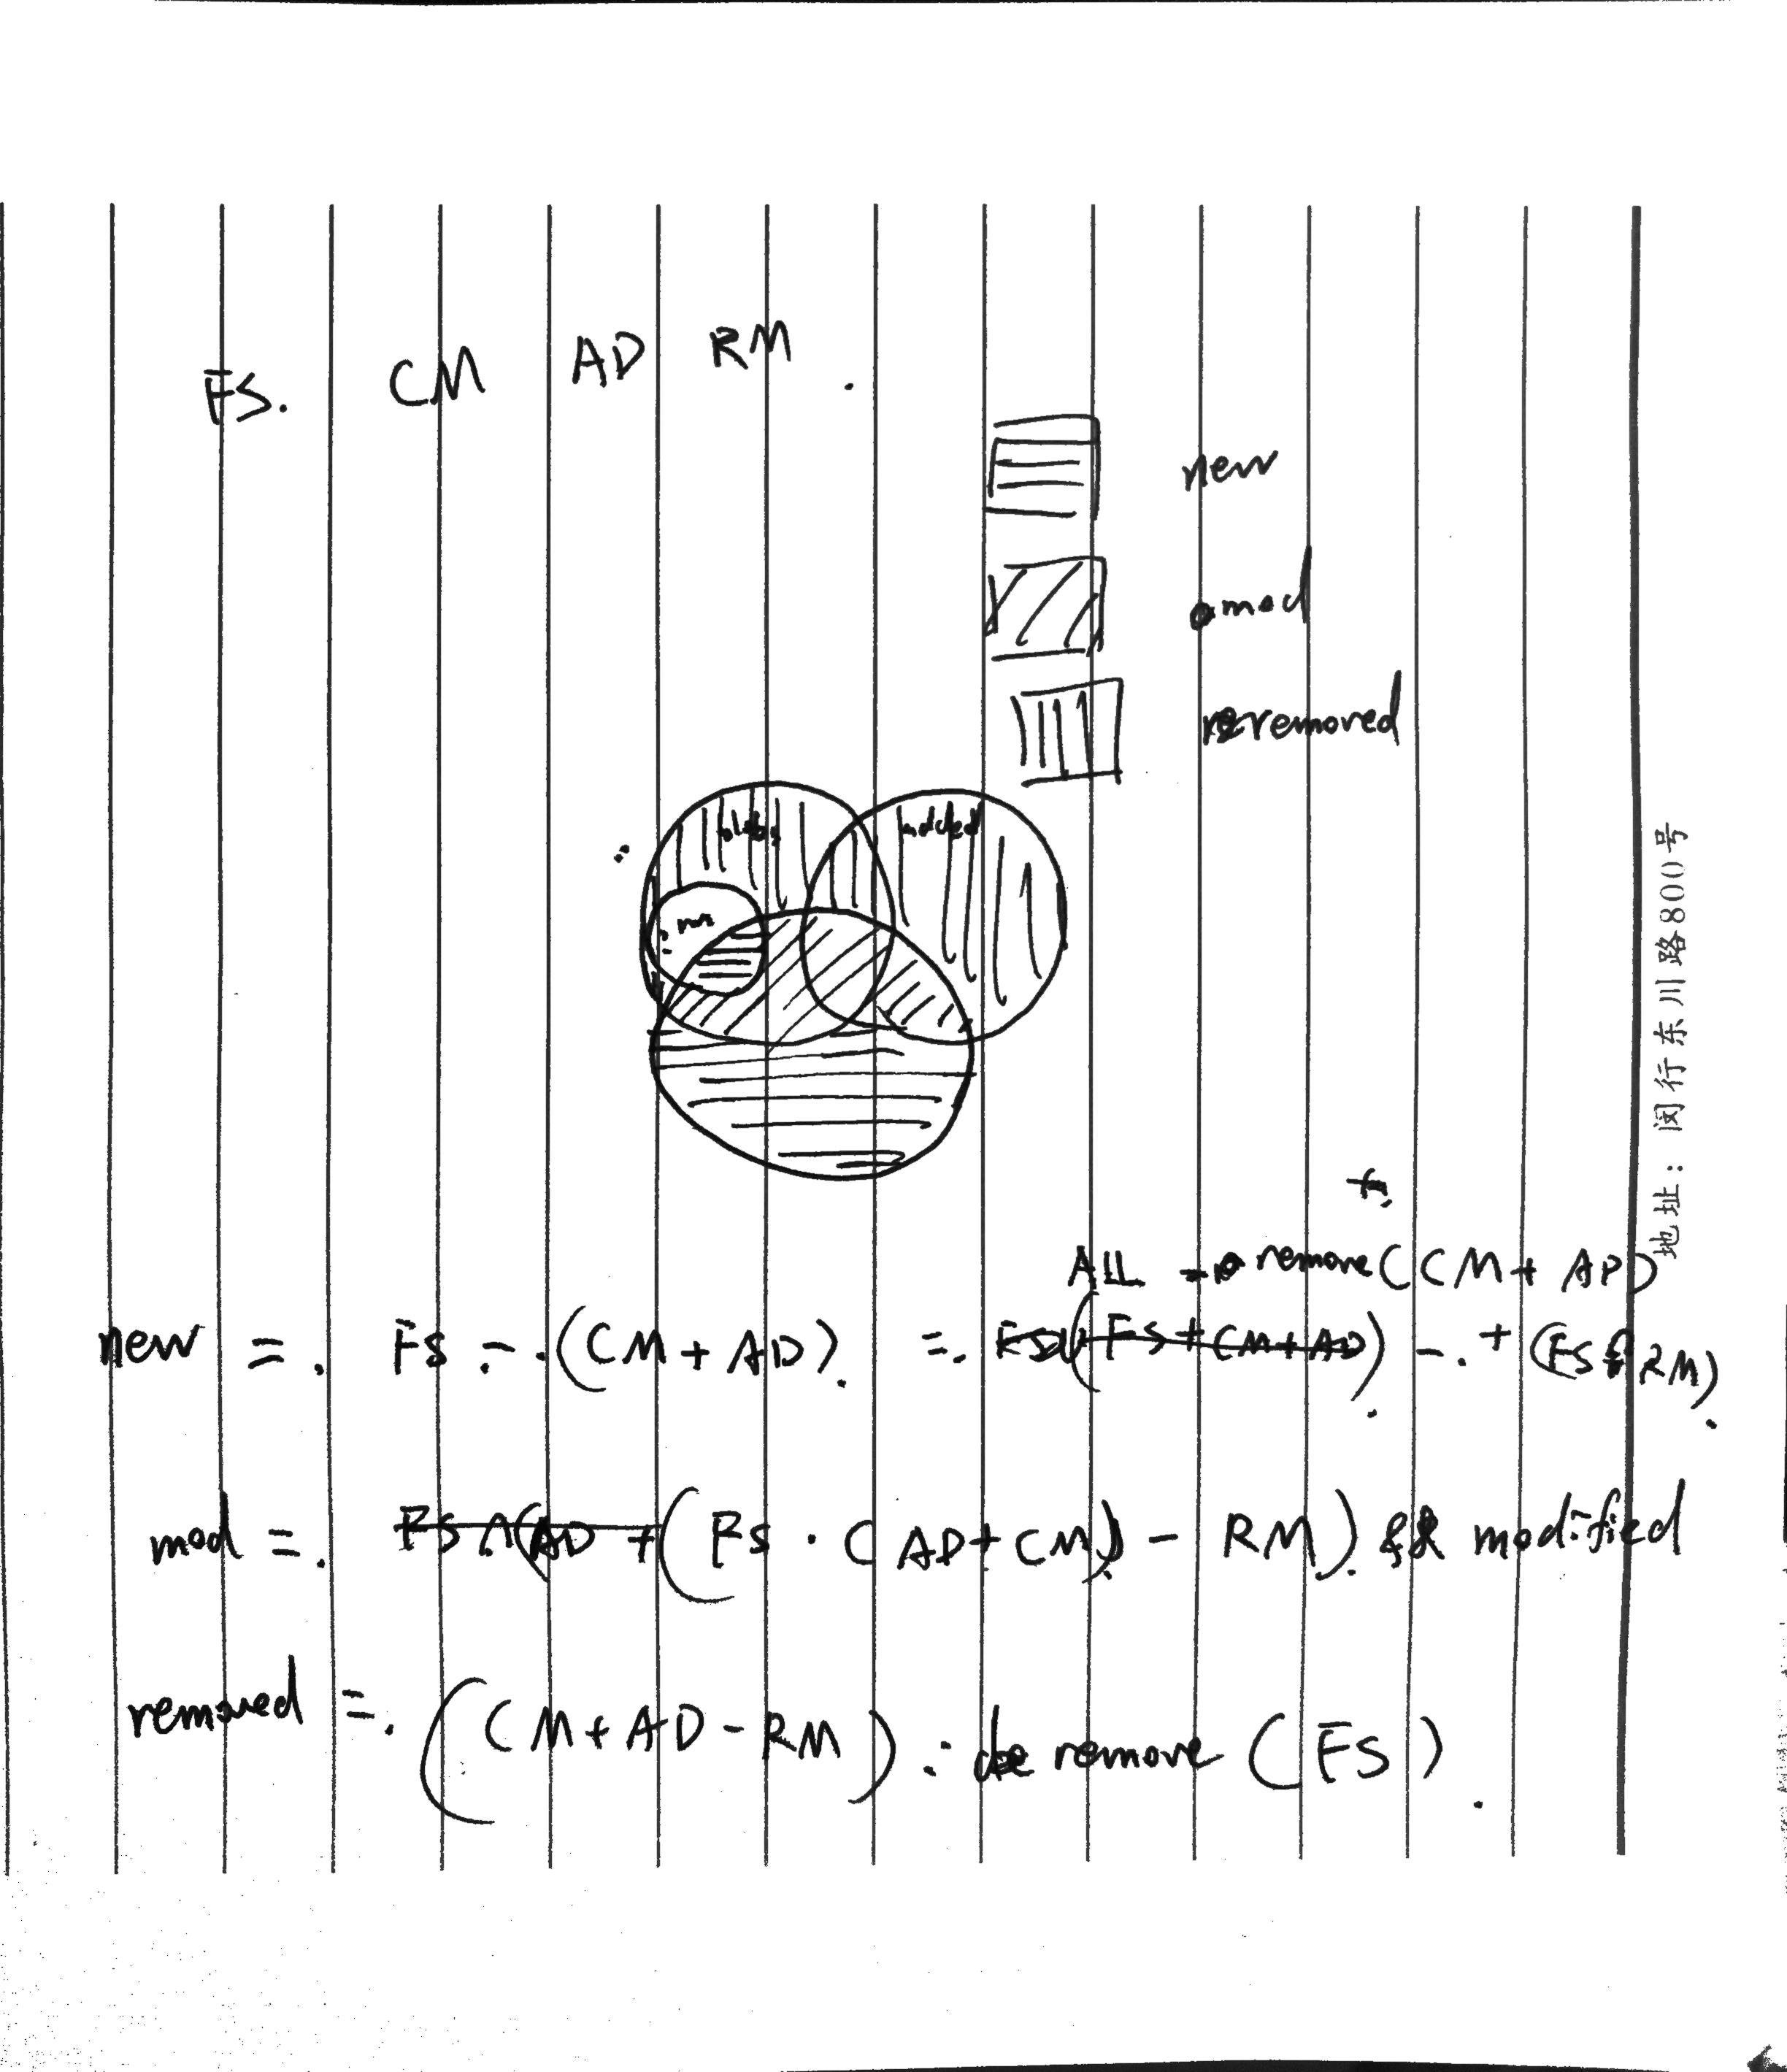 FS. CM AD RM .
new
mod
removed
blobs added
rm
ALL - remove (CM + AD)
new = . FS - . (CM + AD) . = . FS∪(FS + (CM + AD)) - . + (FS & RM) .
mod = . FS ∩ (AD + (FS · (AD + CM) - RM) . && modified
removed = . (CM + AD - RM) . remove (FS) .
地址：闵行东川路800号